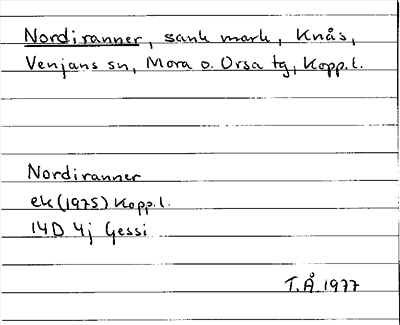 Nordiranner, sank mark, Knås,
Venjans sn, Mora o. Orsa tg, Kopp.l.
Nordiranner
ek (1975) Kopp.l.
14D 4j Gessi
T.Å. 1977